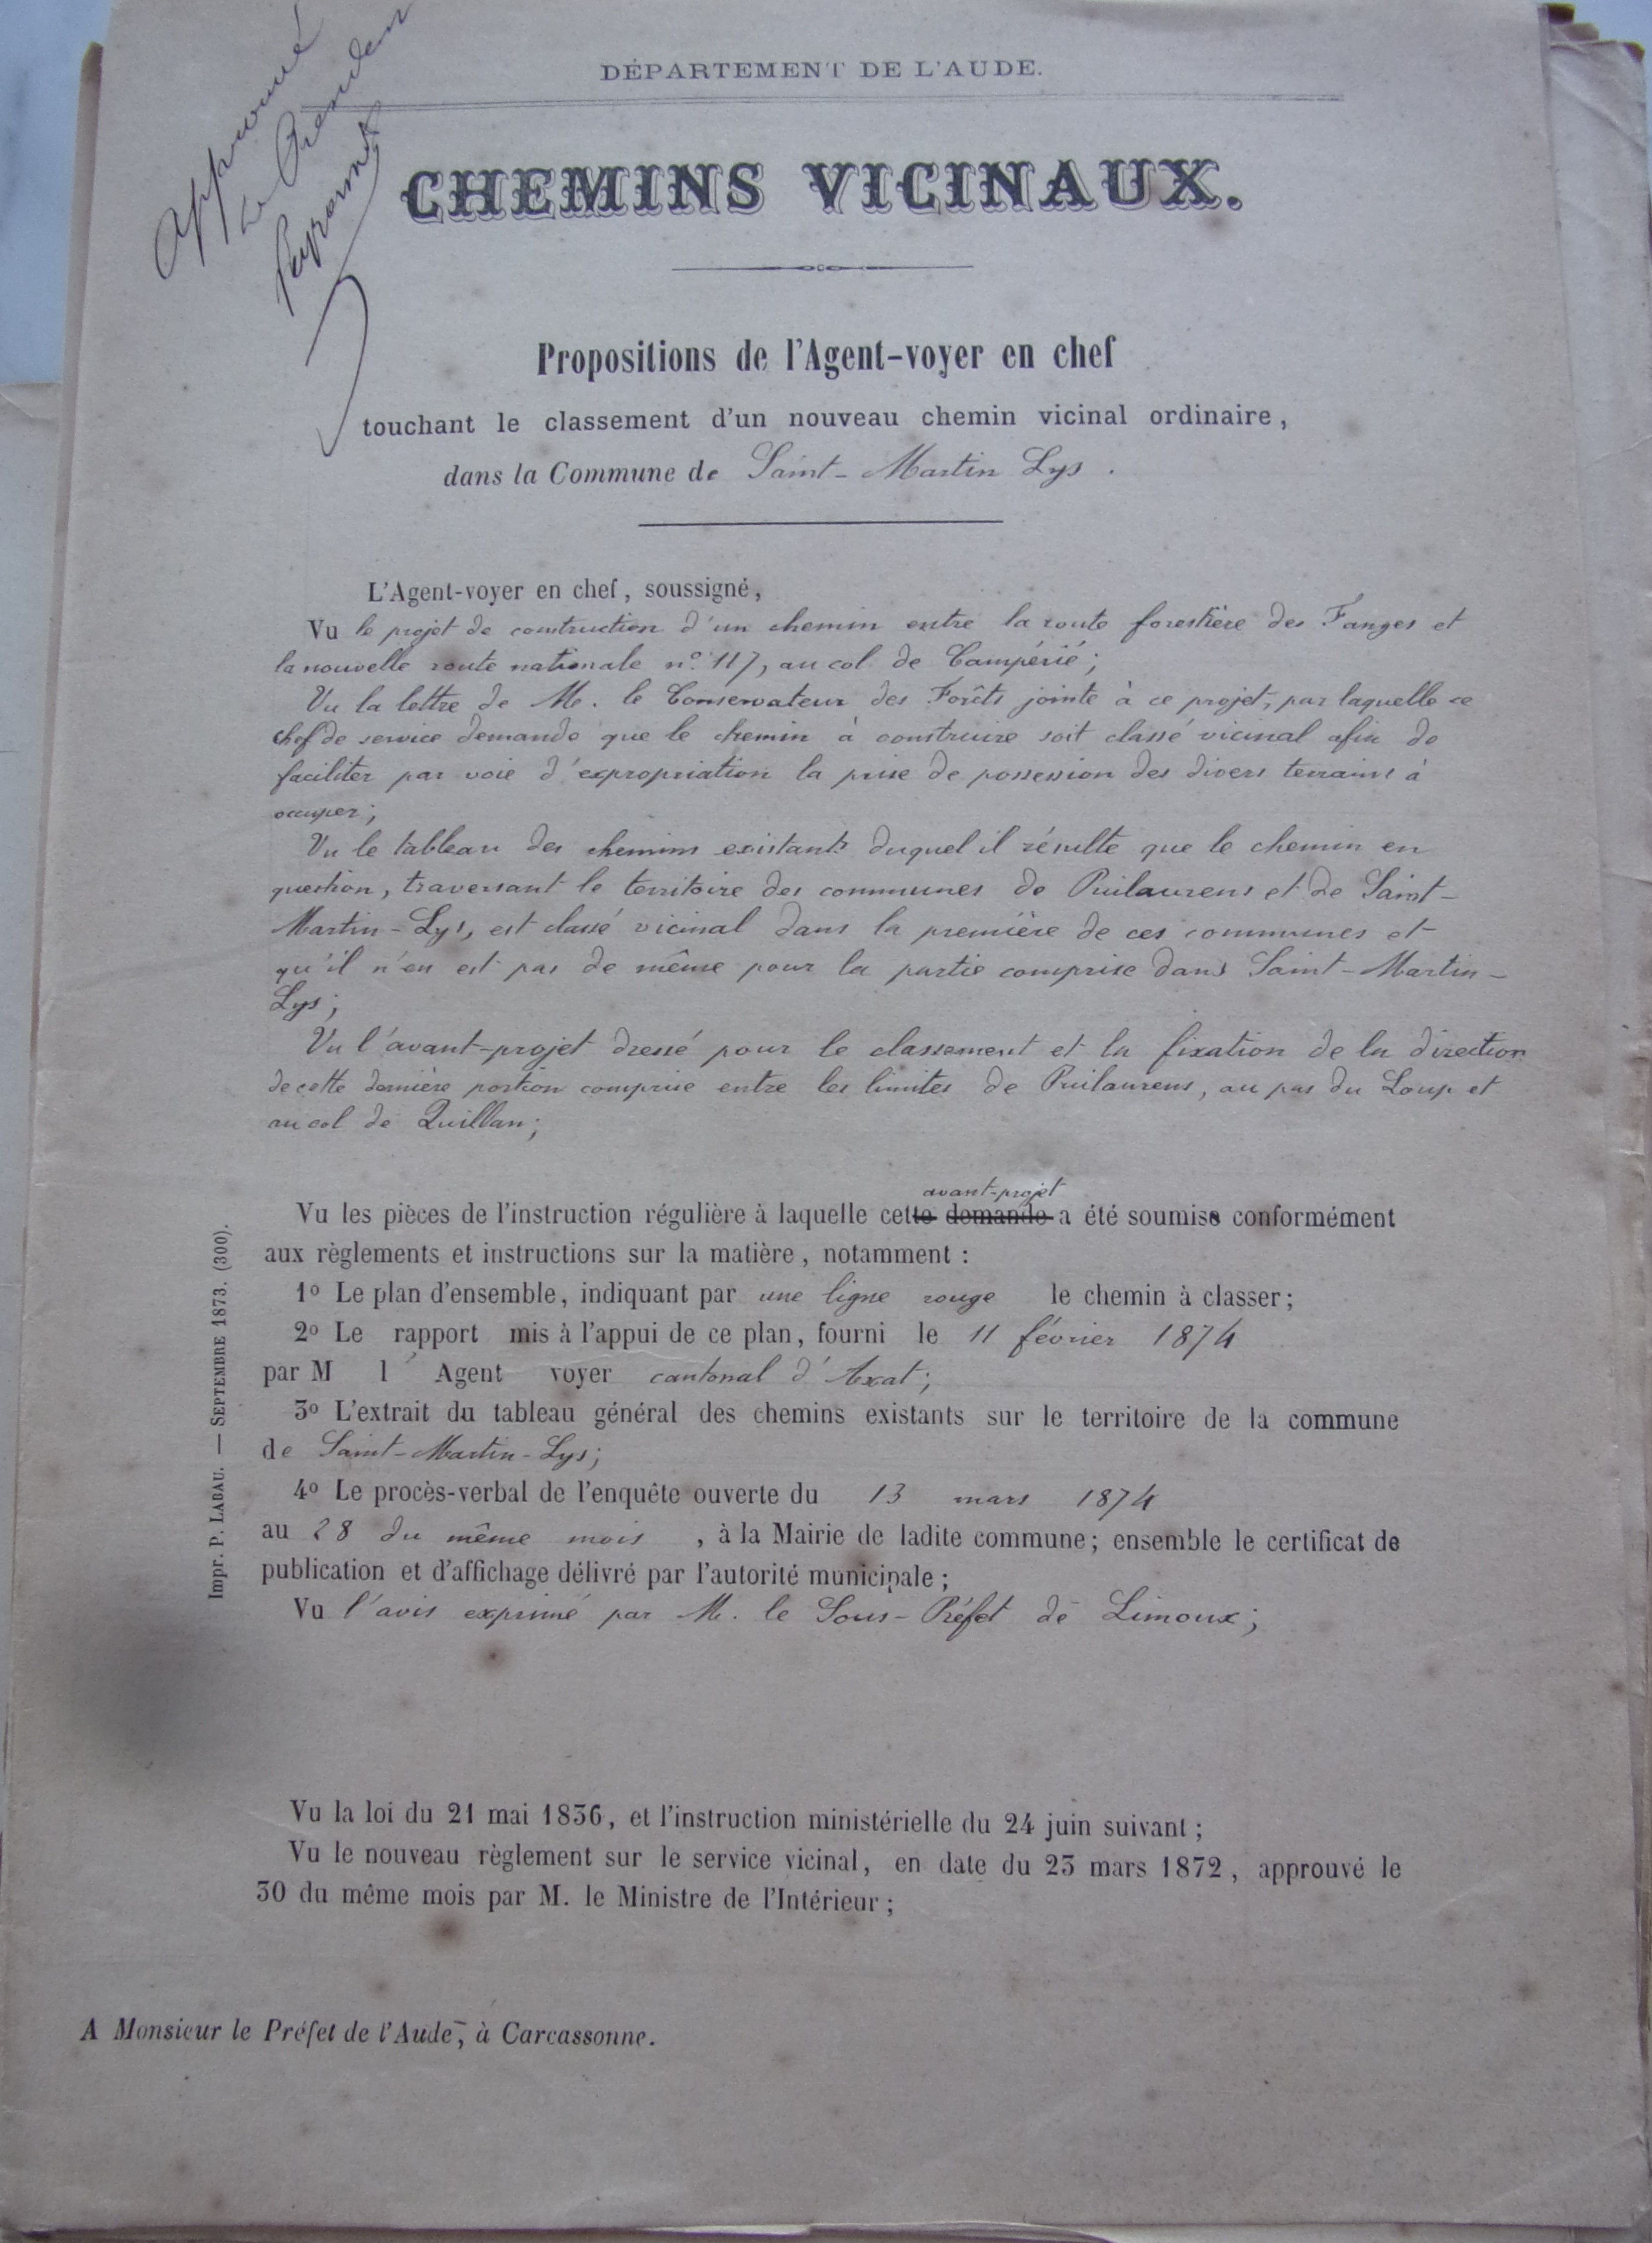 Approuvé
Le Président
DÉPARTEMENT DE L'AUDE.
CHEMINS VICINAUX.
Propositions de l'Agent-voyer en chef
touchant le classement d'un nouveau chemin vicinal ordinaire,
dans la Commune de Saint-Martin Lys.
L'Agent-voyer en chef, soussigné,
Vu le projet de construction d'un chemin entre la route forestière des Fanges et
la nouvelle route nationale n° 117, au col de Campérié;
Vu la lettre de M. le Conservateur des Forêts jointe à ce projet, par laquelle ce
chef de service demande que le chemin à construire soit classé vicinal afin de
faciliter par voie d'expropriation la prise de possession des divers terrains à
occuper;
Vu le tableau des chemins existants duquel il résulte que le chemin en
question, traversant le territoire des communes de Puilaurens et de Saint-
Martin-Lys, est classé vicinal dans la première de ces communes et
qu'il n'en est pas de même pour la partie comprise dans Saint-Martin-
Lys;
Vu l'avant-projet dressé pour le classement et la fixation de la direction
de cette dernière portion comprise entre les limites de Puilaurens, au pas du Loup et
au col de Quillan;
avant-projet
Vu les pièces de l'instruction régulière à laquelle cette demande a été soumise conformément
aux règlements et instructions sur la matière, notamment :
1° Le plan d'ensemble, indiquant par une ligne rouge le chemin à classer;
2° Le rapport mis à l'appui de ce plan, fourni le 11 février 1874
par M l'Agent voyer cantonal d'Axat;
3° L'extrait du tableau général des chemins existants sur le territoire de la commune
de Saint-Martin-Lys;
4° Le procès-verbal de l'enquête ouverte du 13 mars 1874
au 28 du même mois, à la Mairie de ladite commune; ensemble le certificat de
publication et d'affichage délivré par l'autorité municipale;
Vu l'avis exprimé par M. le Sous-Préfet de Limoux;
Vu la loi du 21 mai 1836, et l'instruction ministérielle du 24 juin suivant;
Vu le nouveau règlement sur le service vicinal, en date du 23 mars 1872, approuvé le
30 du même mois par M. le Ministre de l'Intérieur;
A Monsieur le Préfet de l'Aude, à Carcassonne.
Impr. P. LABAU. — SEPTEMBRE 1873. (300).